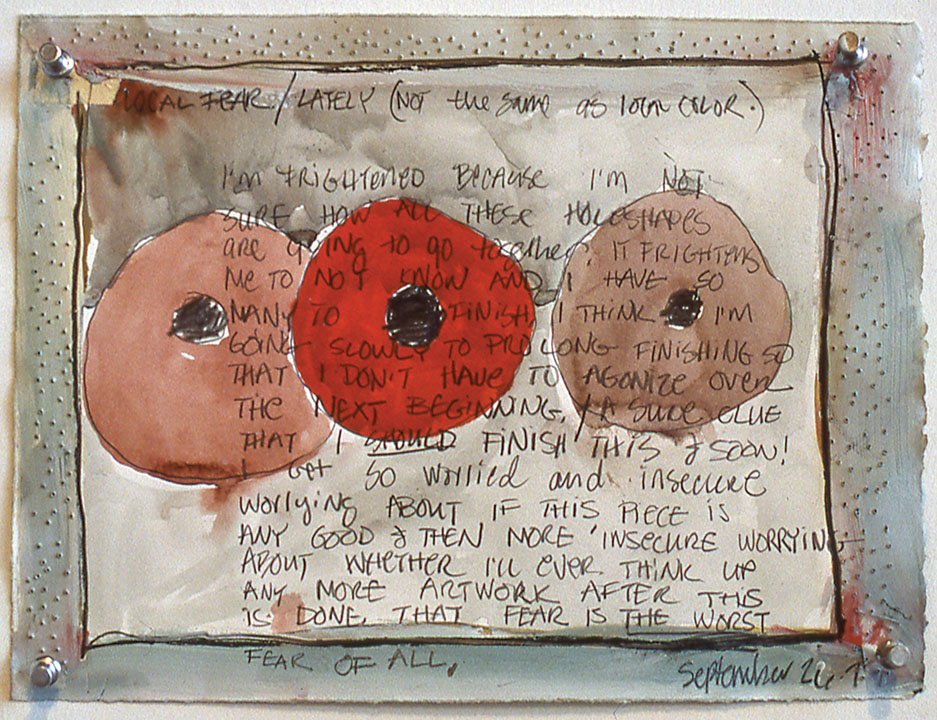 LOCAL FEAR / LATELY (NOT the same as local COLOR.)
I'M FRIGHTENED BECAUSE I'M NOT
SURE HOW ALL THESE HOLESHAPES
are going to go together. IT FRIGHTENS
ME TO NOT KNOW AND I HAVE SO
MANY TO FINISH. I THINK I'M
GOING SLOWLY TO PROLONG FINISHING SO
THAT I DON'T HAVE TO AGONIZE OVER
THE NEXT BEGINNING. / A SURE CLUE
THAT I SHOULD FINISH THIS & SOON!
I GET SO WORRIED and insecure
WORRYING ABOUT IF THIS PIECE IS
ANY GOOD & THEN MORE INSECURE WORRYING
ABOUT WHETHER I'LL EVER THINK UP
ANY MORE ARTWORK AFTER THIS
IS DONE. THAT FEAR IS THE WORST
FEAR OF ALL.
September